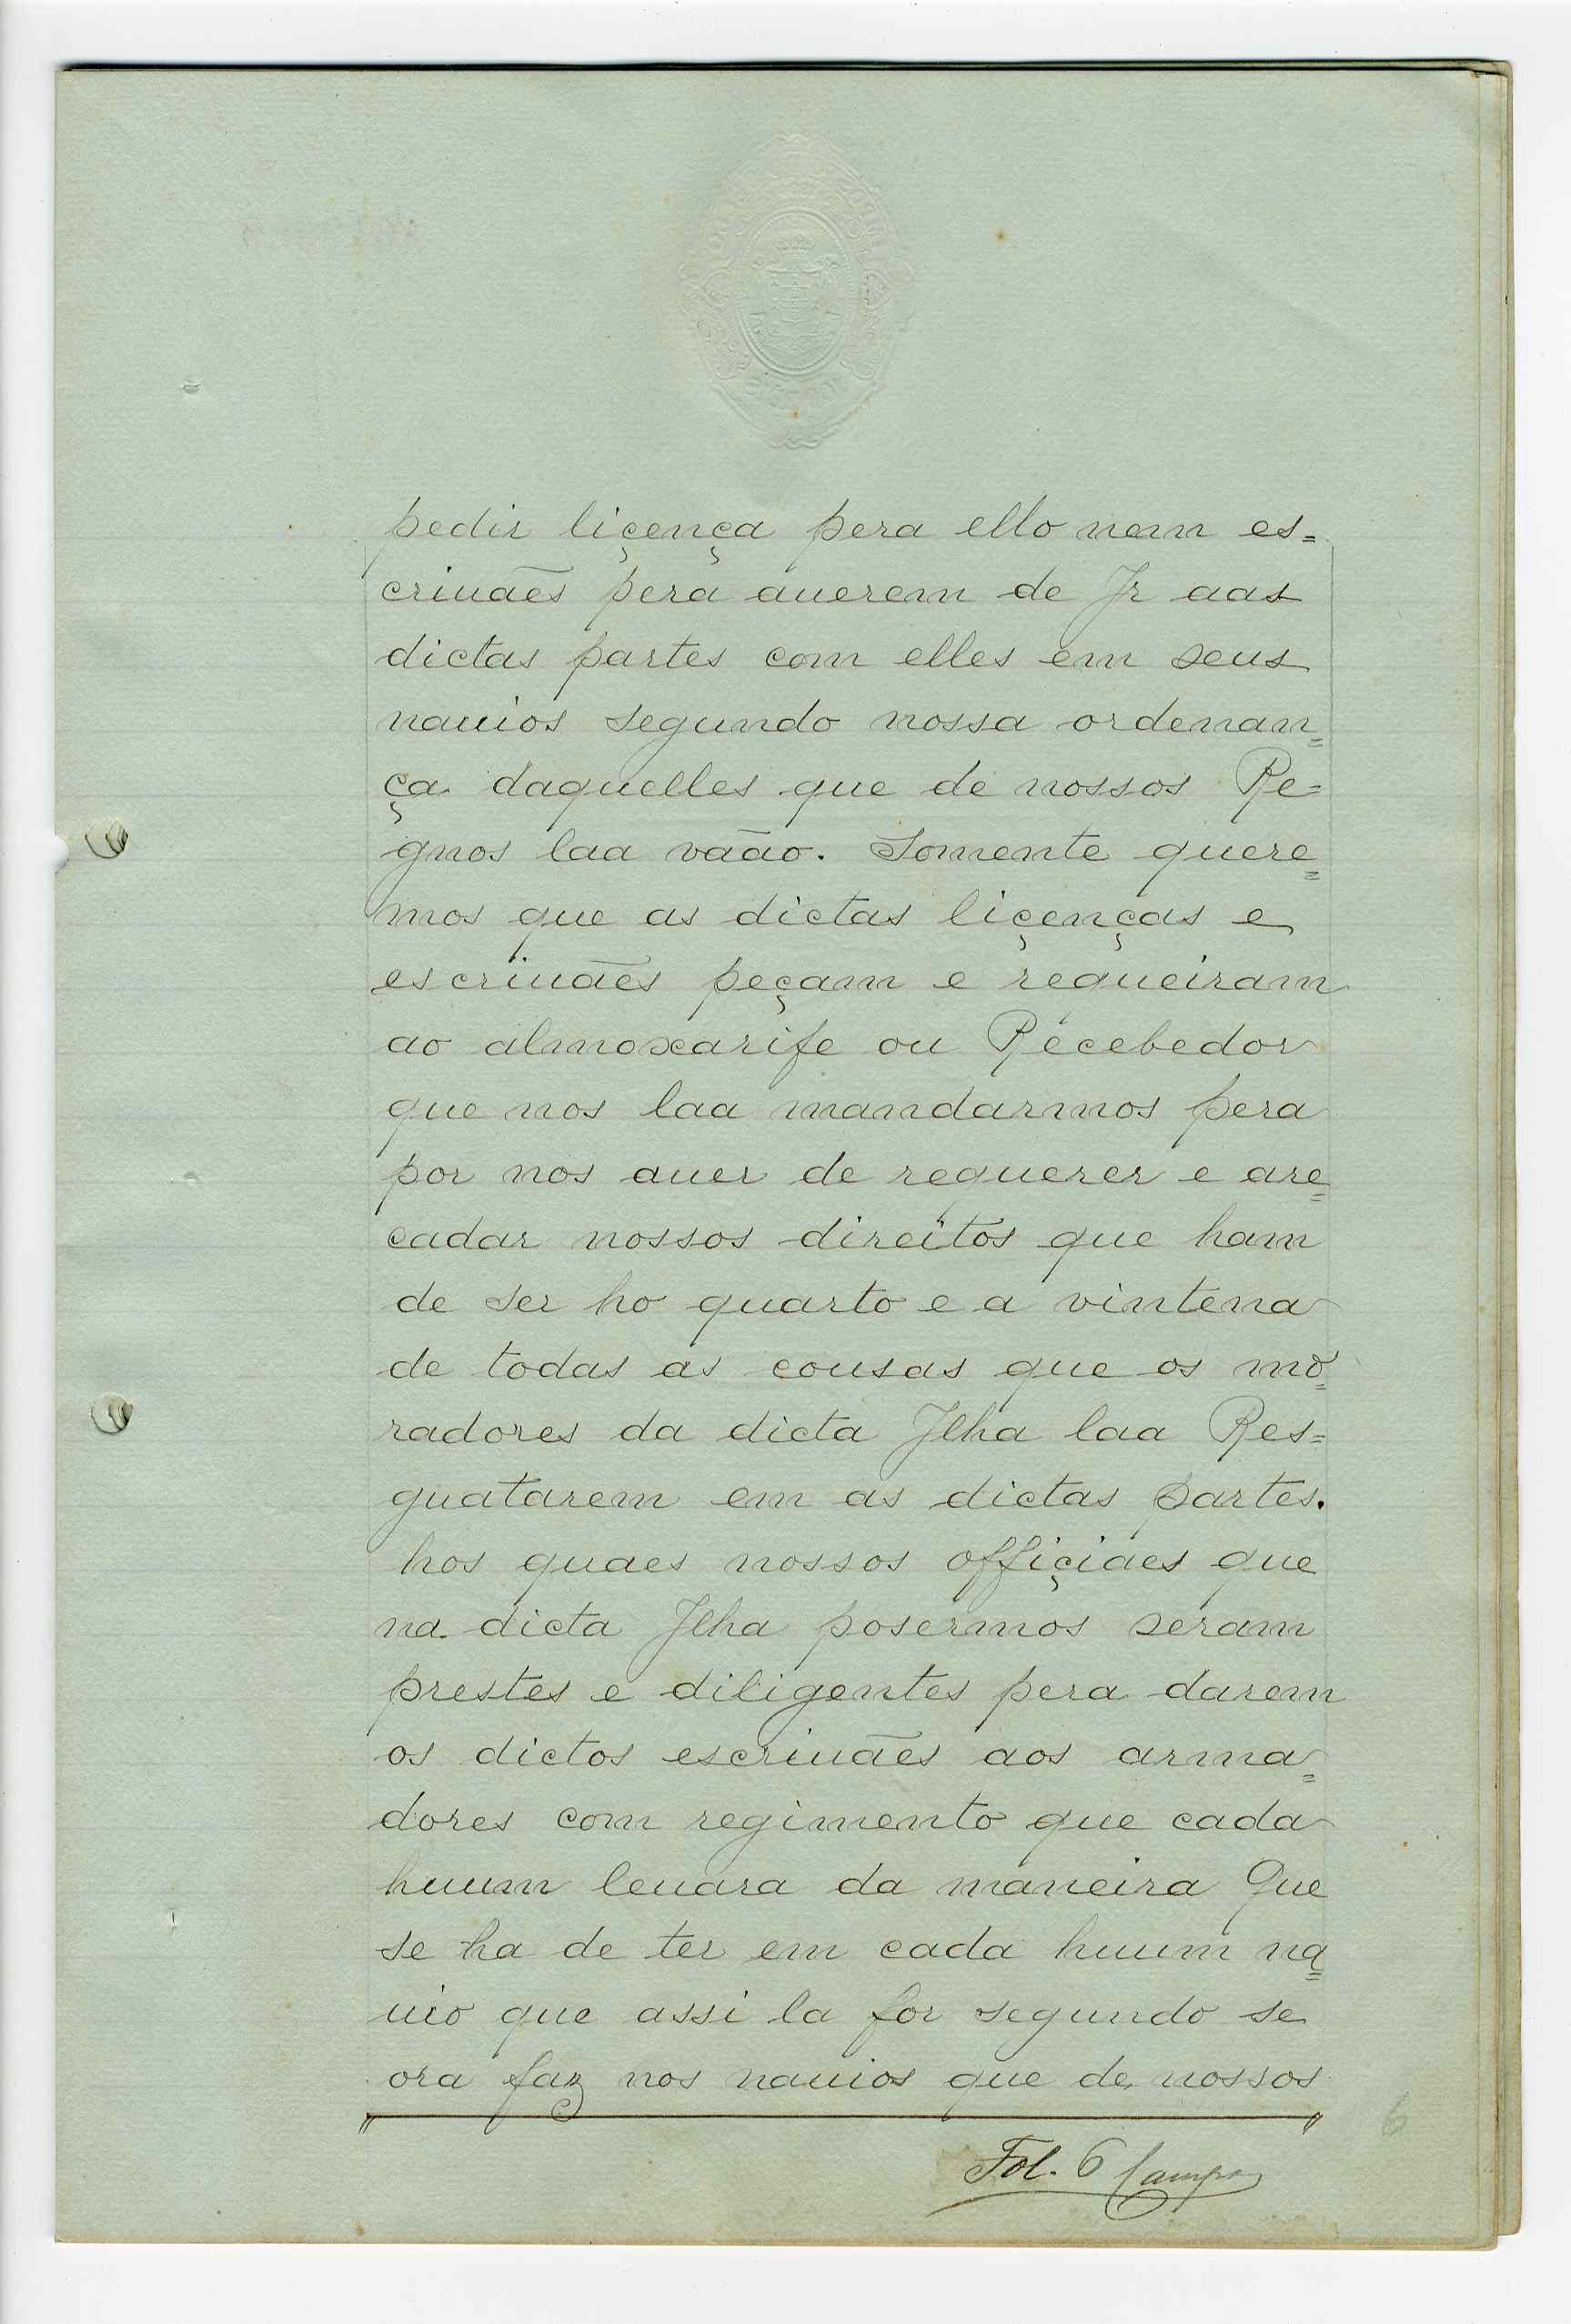 pedir liçença pera ello nem es=
criuães pera auerem de Jr aas
dictas partes com elles em seus
nauios segundo nossa ordenan=
ça daquelles que de nossos Re=
gnos laa vaão. Somente quere=
mos que as dictas liçenças e
escriuães peçam e requeiram
ao almoxarife ou Recebedor
que nos laa mandarmos pera
por nos auer de requerer e are=
cadar nossos direitos que ham
de ser ho quarto e a vintena
de todas as cousas que os mo=
radores da dicta Jlha laa Res=
guatarem em as dictas partes.
hos quaes nossos offiçiaes que
na dicta Jlha posermos seram
prestes e diligentes pera darem
os dictos escriuães aos arma=
dores com regimento que cada
huum leuara da maneira Que
se ha de ter em cada huum na=
uio que assi la for segundo se
ora faz nos nauios que de nossos
Fol. 6 Campos
6